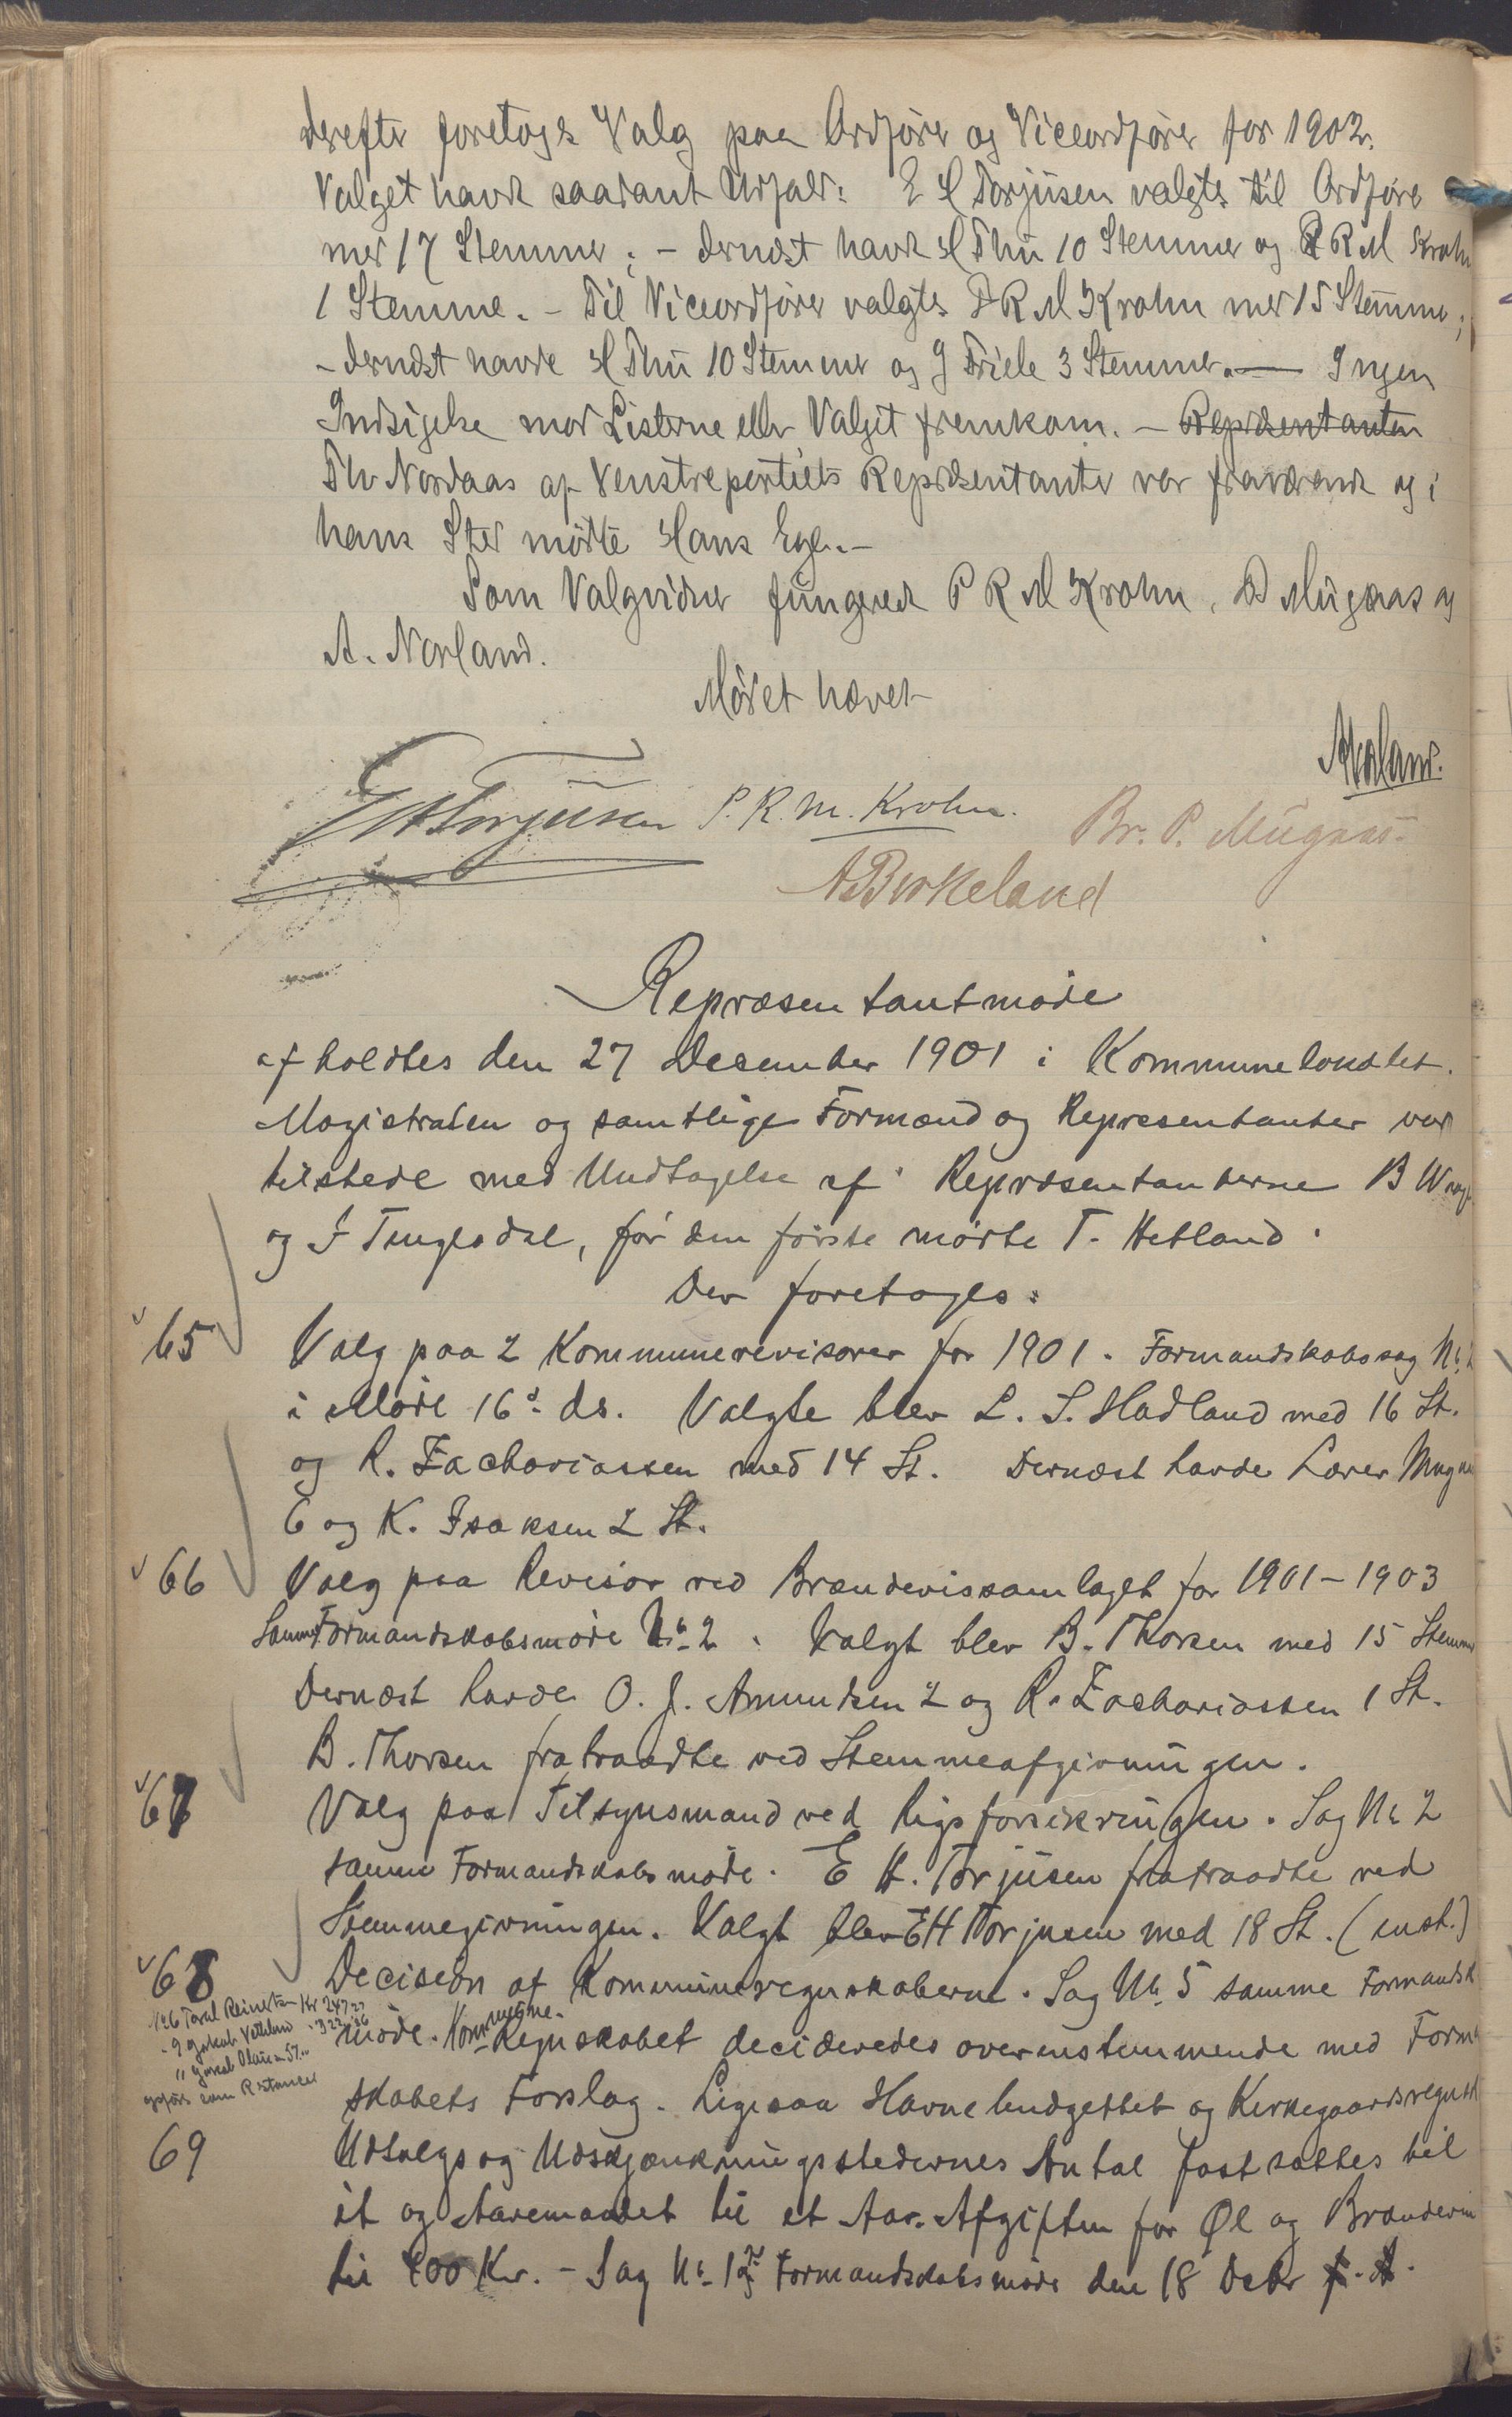 derefter foretoges Valg paa Ordfører og Viceordfører for 1902.
Valget havde saadant Udfald: E H Torjüsen valgtes til Ordfører
med 17 Stemmer; - dernæst havde H Thu 10 Stemmer og P R M Krohn
1 Stemme. - Til Viceordfører valgtes P R M Krohn med 15 Stemmer;
- dernæst havde H Thu 10 Stemmer og J Friele 3 Stemmer. — Ingen
Indsigelse mod Listerne eller Valget fremkom. - Repræsentanten
Th Nordaas af Venstrepartiets Repræsentanter var fraværende og i
hans Sted mødte Hans Ege. -
Som Valgvidner fungerede P R M Krohn, B Mügaas og
A. Norland.
Mødet hævet
E H Torjüsen P. R. M. Krohn. Br. P. Mügaas.
A Birkeland
Repræsentantmøde
afholdtes den 27 December 1901 i Kommunelokalet.
Magistraten og samtlige Formænd og Repræsentanter var
tilstede med Undtagelse af Repræsentanterne B
og I Tengesdal, før den første mødte T. Hetland.
Der foretoges:
65 Valg paa 2 Kommunerevisorer for 1901. Formandskabssag No.
i Møde 16d. ds. Valgte blev L. S. Hadland med 16 St.
og R. Zachariassen med 14 St. Dernæst havde Lærer Mugaas
6 og K. Isaksen 2 St.
66 Valg paa Revisor ved Brændevinssamlaget for 1901-1903
Samme Formandskabsmøde No. 2. Valgt blev B. Thorsen med 15 Stemmer
Dernæst havde O. J. Amundsen 2 og R. Zachariassen 1 St.
B. Thorsen fratraadte ved Stemmeafgivningen.
67 Valg paa Tilsynsmand ved Rigsforsikringen. Sag No 2
samme Formandskabsmøde. E H. Torjüsen fratraadte ved
Stemmegivningen. Valgt blev E H Torjusen med 18 St. (enst.)
68 Decision af Kommuneregnskaberne. Sag No. 5 samme Formandsk
møde. Kommune-Regnskabet decideredes overensstemmende med Formand
skabets Forslag. Ligesaa Havnebudgettet og Kirkegaardsregnsk
69 Udsalgs og Udskjænkningsstedernes Antal fastsattes til
et og Aaremaalet til et Aar. Afgiften for Øl og Brændevin
til 400 Kr. - Sag No. 1 Formandskabsmøde den 18 Decbr